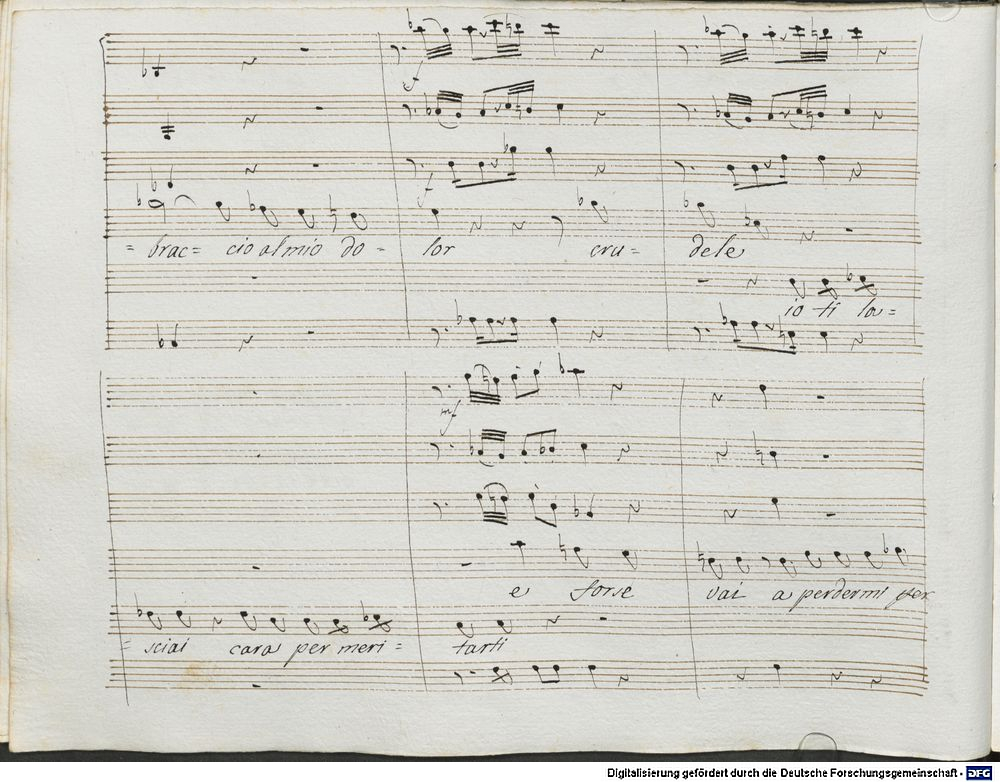 f
f
= brac = cio al mio do = lor cru = dele
io ti la =
mf
e forse vai a perdermi per
= sciai cara per meri = tarti
Digitalisierung gefördert durch die Deutsche Forschungsgemeinschaft - DFG